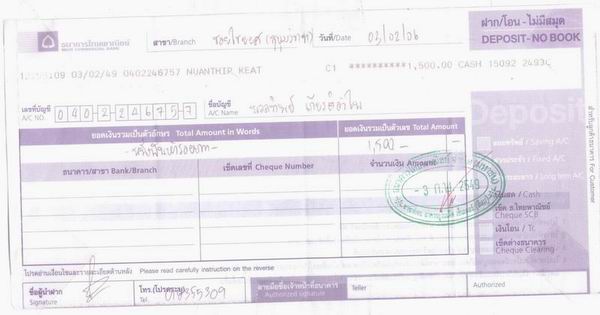 ธนาคารไทยพาณิชย์
SIAM COMMERCIAL BANK
สาขา/Branch วันที่/Date 03/02/06
ฝาก/โอน - ไม่มีสมุด
DEPOSIT-NO BOOK
03/02/49 0402246757 NUANTHIP KEAT C1 **********1,500.00 CASH 15092
เลขที่บัญชี
A/C NO. 0402246757
ชื่อบัญชี
A/C NAME
ยอดเงินรวมเป็นตัวอักษร Total Amount in Words
ยอดเงินรวมเป็นตัวเลข Total Amount
-หนึ่งพันห้าร้อยบาท-
1,500 -
ธนาคาร/สาขา Bank/Branch
เช็คเลขที่ Cheque Number
จำนวนเงิน Amount
- 3 ก.พ. 2549
Deposit
ออมทรัพย์ / Saving A/C
ประจำ / Fixed A/C
Long term A/C
เงินสด / Cash
เช็ค ธ.ไทยพาณิชย์
Cheque SCB
เงินโอน / Tr.
เช็คต่างธนาคาร
Cheque Clearing
สำหรับลูกค้าธนาคาร For Customer
โปรดอ่านเงื่อนไขและรายละเอียดด้านหลัง Please read carefully instruction on the reverse
ชื่อผู้นำฝาก
Signature
โทร.(โปรดระบุ)
Tel.
ลายมือชื่อเจ้าหน้าที่ธนาคาร
Authorized signature
Teller
Authorized